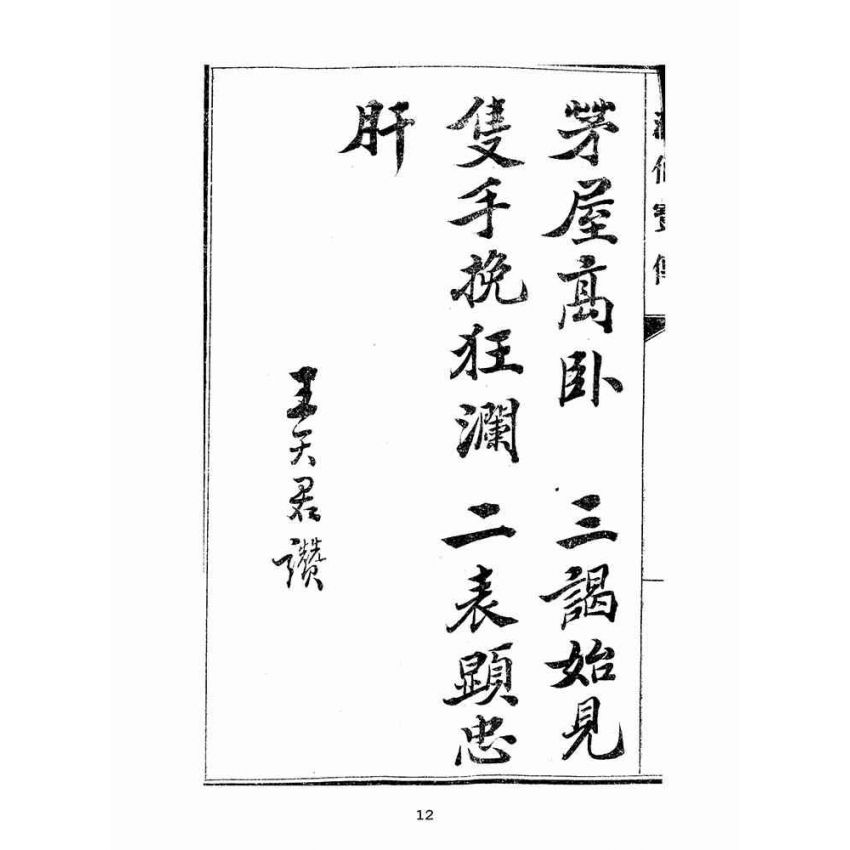 茅屋高卧 三謁始見
隻手挽狂瀾 二表顯忠
肝
王天君讚
12